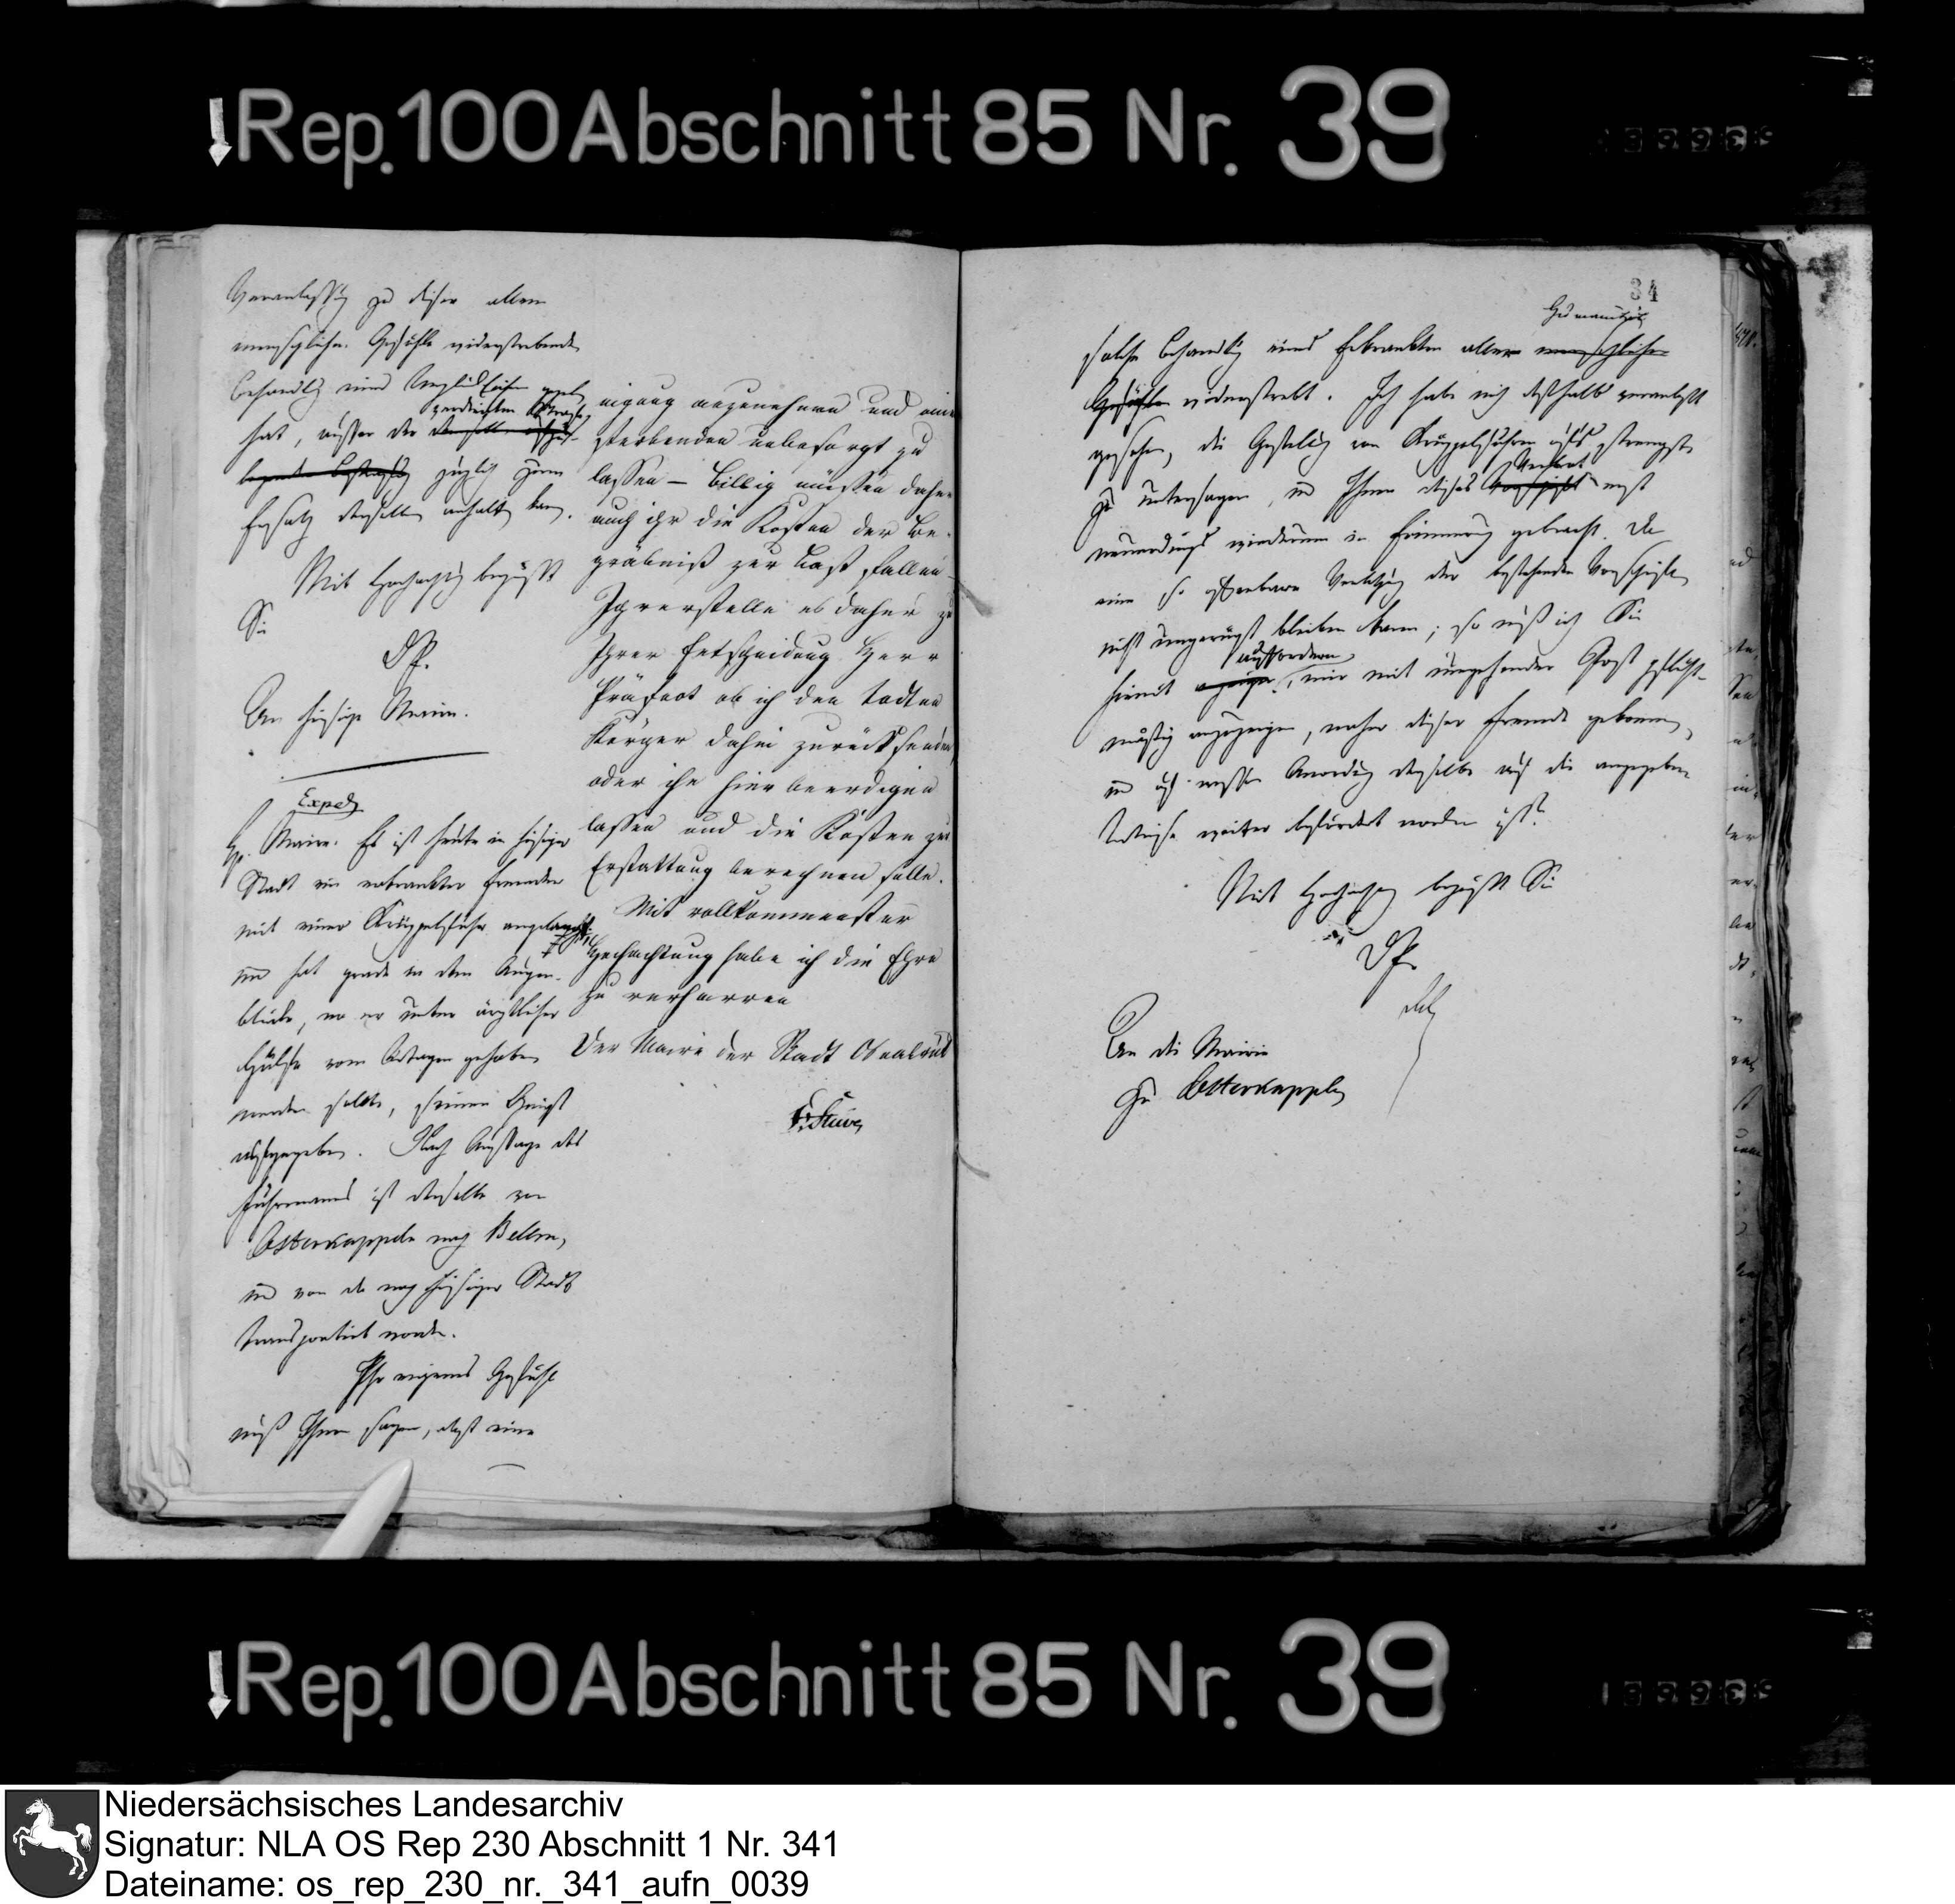 Rep. 100 Abschnitt 85 Nr. 39
Veranlassung zu dieser allem
menschlichen Gefühle widerstrebenden
Behandlung eines Unglücklichen gegeben
hat, außer der
verdienten Strafe
Bestrafung zum
Ersatz derselben anhalten kann.
Mit Hochachtung begrüßt
Sie
D. P.
An hiesige Mairie.
Exped.
H. Maire. Es ist heute in hiesiger
Stadt ein erkrankter Fremder
mit einer Krüppelfuhre angelangt,
und hat grade in dem Augen-
blicke, wo er unter ärztlicher
Hülfe vom Wagen gehoben
werden sollte, seinen Geist
aufgegeben. Nach Aussage des
Fuhrmanns ist derselbe von
Osterkappeln nach Belm,
und von da nach hiesiger Stadt
transportirt worden.
Ihr eigenes Gefühl
muß Ihnen sagen, daß eine
nigung anzunehmen und einen
sterbenden unbesorgt zu
lassen – Billig müssen daher
auch ihr die Kosten der Be-
gräbniß zur Last fallen
Ich verstelle es daher zu
Ihrer Entscheidung Herr
Präfect ob ich den todten
Körper dahin zurücksenden,
oder ihn hier beerdigen
lassen und die Kosten zur
Erstattung berechnen solle.
Mit vollkommenster
Hochachtung habe ich die Ehre
zu verharren
Der Maire der Stadt Osnabrück
Stüve
34
Humanität
solche Behandlung eines Erkrankten aller menschlichen
Gefühle widerstrebt. Ich habe mich deshalb veranlaßt
gesehen, die Gestellung von Krüppelfuhren aufs strengste
Verbot
zu untersagen, und Ihnen dieses Vorschrift erst
neuerdings wiederum in Erinnerung gebracht. Da
eine so offenbare Verletzung der bestehenden Vorschriften
nicht ungerügt bleiben kann; so muß ich Sie
auffordern
hiemit, mir mit umgehender Post pflicht-
mäßig anzuzeigen, woher dieser Fremde gekommen,
und auf wessen Anordnung derselbe auf die angegebene
Weise weiter befördert worden ist?
Mit Hochachtung begrüßt Sie
D. P.
An die Mairie
zu Osterkappeln
Rep. 100 Abschnitt 85 Nr. 39
Niedersächsisches Landesarchiv
Signatur: NLA OS Rep 230 Abschnitt 1 Nr. 341
Dateiname: os_rep_230_nr._341_aufn_0039